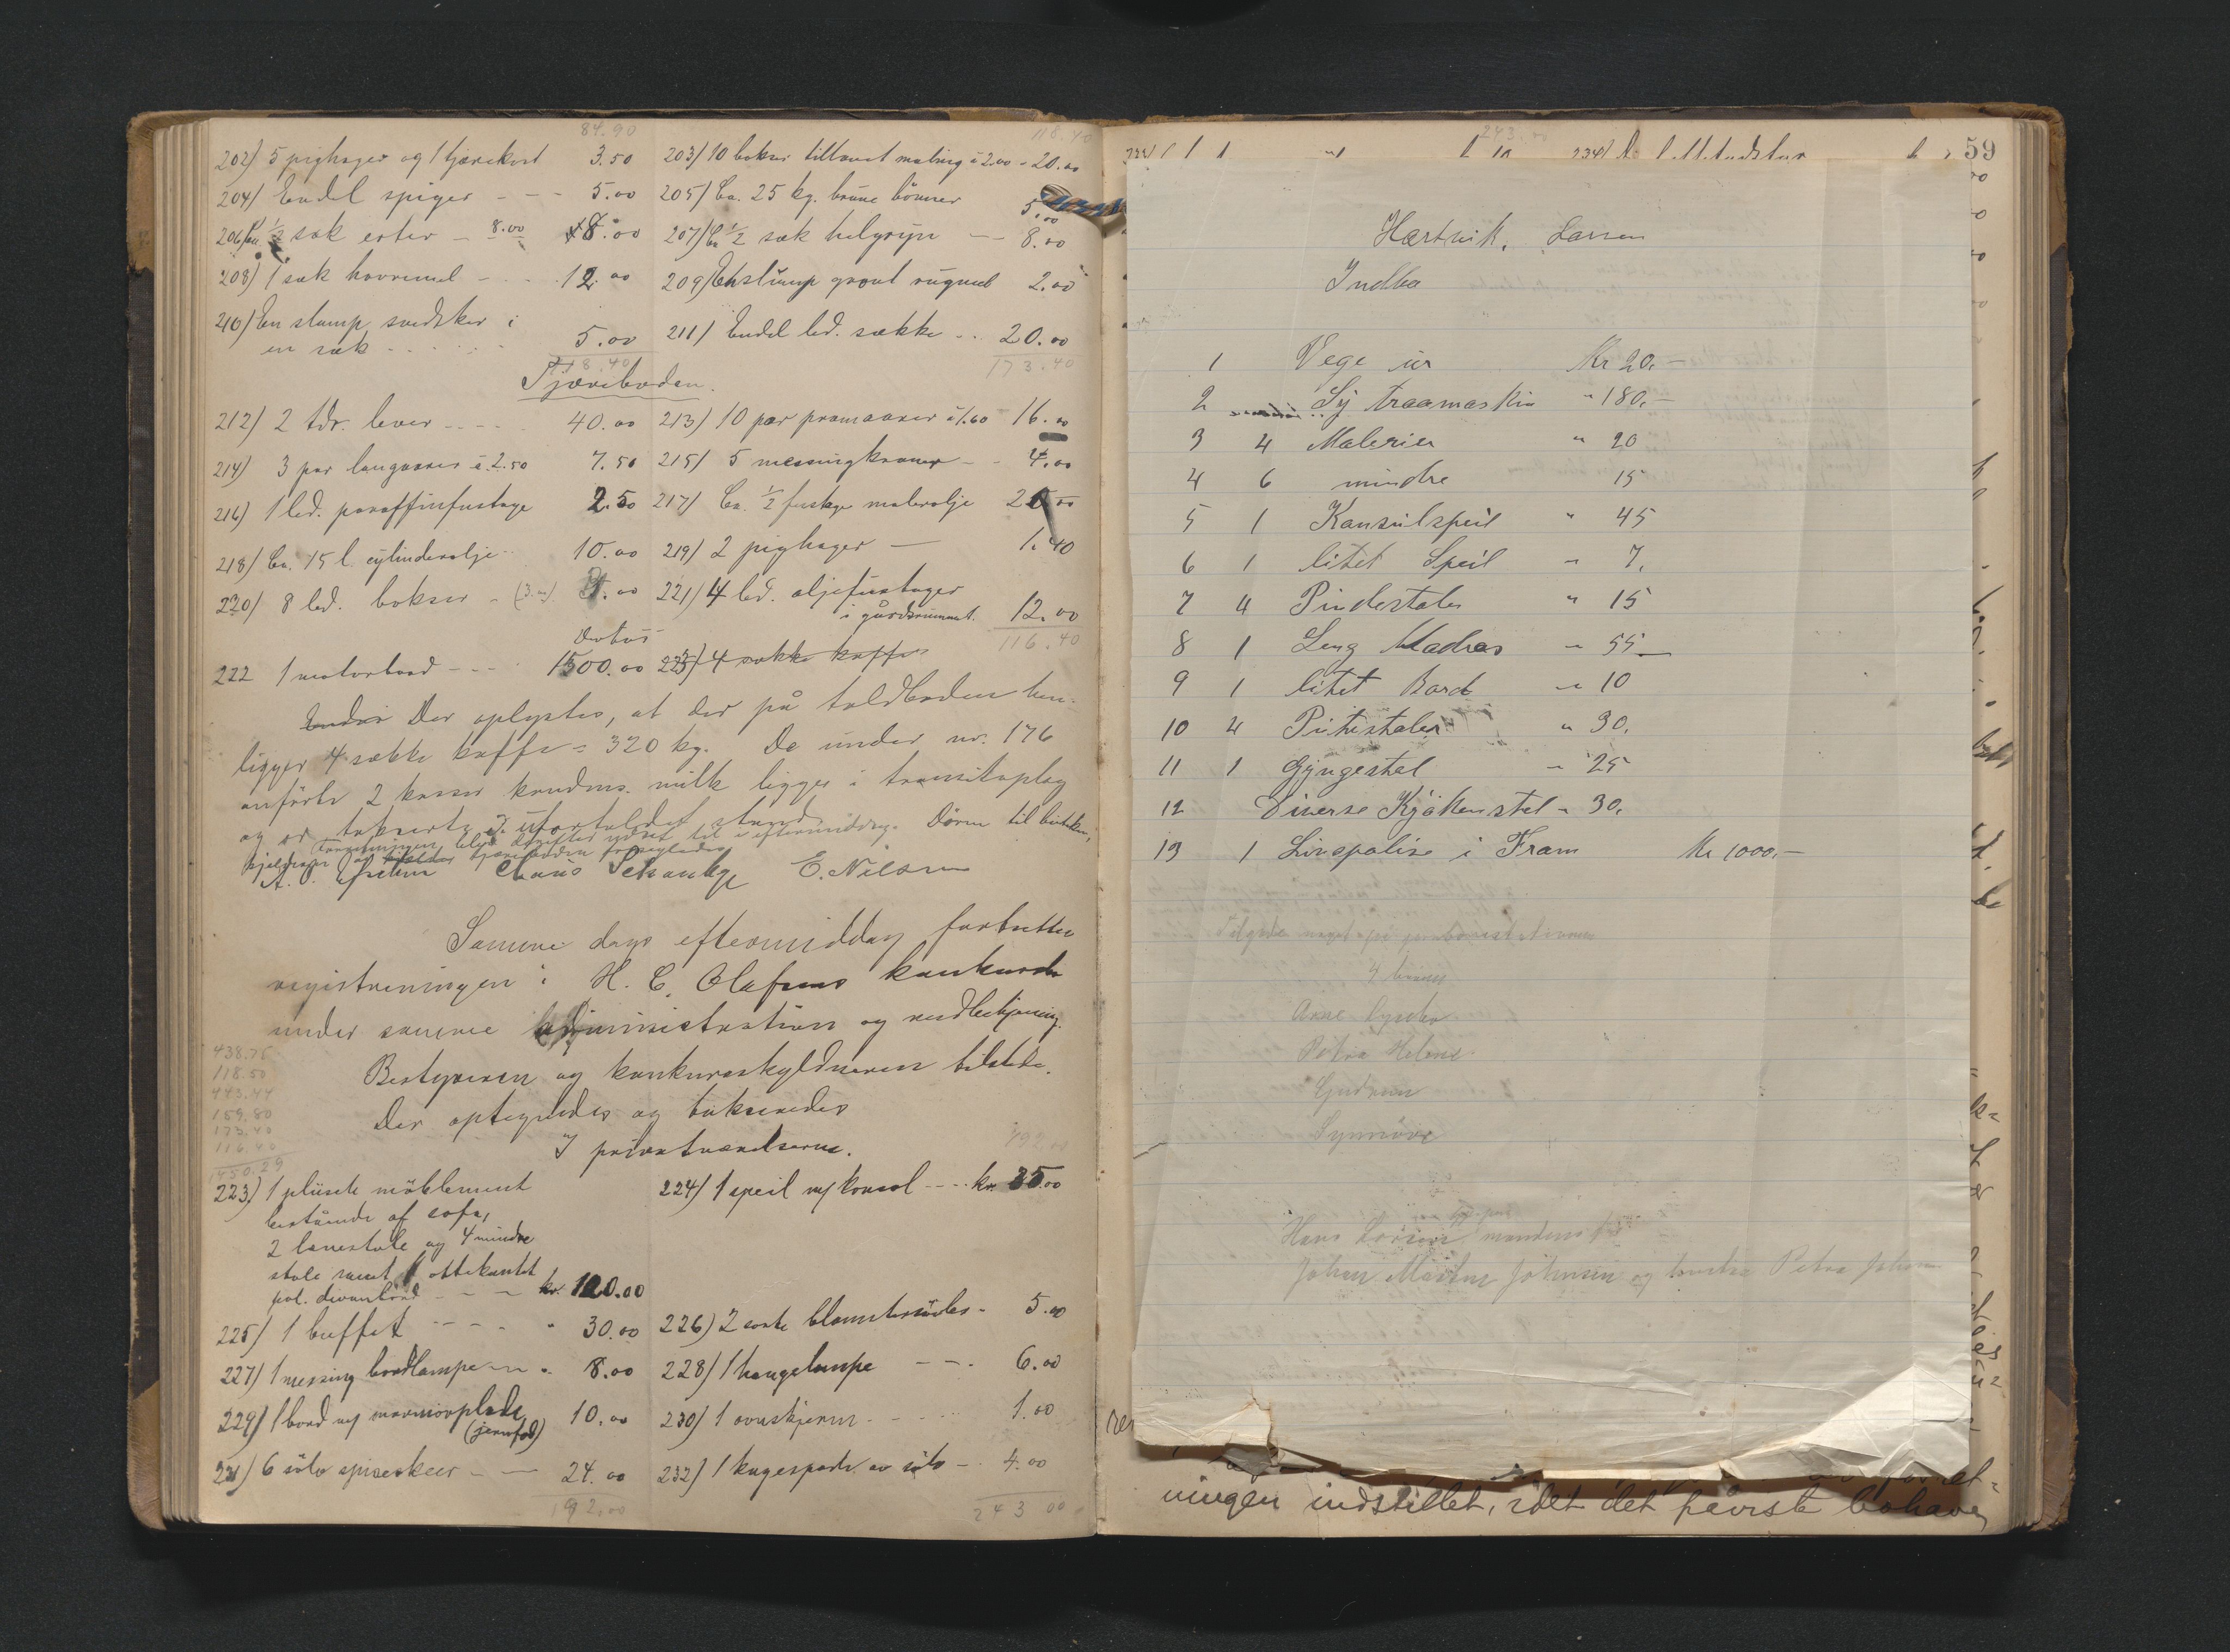 84.90 118.40
202) 5 pighager og 1 tjærekost 3.50 203) 10 bokser tillavet maling à 2.00 - 20.00
204) Endel spiger - - - 5.00 205) Ca. 25 kg. brune bönner 5.00
206) Ca. 1/2 sæk erter - 8.00 8.00 207) Ca 1/2 sæk helgryn - - 8.00
208) 1 sæk havremel - . . . 12.00 209) En slump grovt rugmel 2.00
210) En slump svedsker i
en sæk . . . . . . 5.00 211) Endel led. sække . . 20.00
118.40 173.40
Tjæreboden.
212) 2 tdr. lever - - - - 40.00 213) 10 par pramaarer à 1.60 16.00
214) 3 par langaarer à 2.50 7.50 215) 5 messingkraner - - 4.00
216) 1 led. paraffinfustage 2.50 217) Ca. 1/2 fustage malerolje 20.00
218) Ca. 15 l. cylinderolje 10.00 219) 2 pighager — 1.40
220) 8 led. bokser - (3.00) .00 221) 4 led. oljefustager
i gårdsrummet. 12.00
116.40
222 1 motorbaad - - - 1500.00 223) 4 sække kaffe
Endvi Der oplystes, at der på toldboden hen-
ligger 4 sække kaffe = 320 kg. De under nr. 176
anförte 2 kasser kondens. milk ligger i transitoplag
og er takserte i ufortoldet stand.
Forretningen blev derefter udsat til i eftermiddag. Dören til butikken,
kjelderen og tjæreboden forsegledes
Claus Schanche E. Nilsen
Samme dags eftermiddag fortsattes
registreringen i H. C. Olafsens konkursbo
under samme administration og medbetjening.
Bestyreren og konkursskyldneren tilstede.
Der optegnedes og takseredes
I privatværelserne.
438.75
118.50
443.44
159.80
173.40
116.40
1450.29
223) 1 plüsch möblement
bestående af sofa,
2 lænestole og 4 mindre
stole samt 1 ottekantet
pol. divanbord - - - kr. 120.00
224) 1 speil m/ konsol - - - kr. 35.00
225) 1 buffet - - - - " 30.00 226) 2 sorte blomstersöiler - 5.00
227) 1 messing bordlampe - - " 8.00 228) 1 hængelampe - - . 6.00
229) 1 bord m/ marmorplade
(jernfod) 10.00 230) 1 ovnskjerm - . . . 1.00
231) 6 sölv spiseskeer - — 24.00 232) 1 kagespade av sölv - . 4.00
192.00 243 00
243.00
59
Hartvik. Larsen
Indbo
1 Vege ur Kr 20.-
2 Sy traamaskin " 180.-
3 4 Malerier " 20
4 6 mindre 15
5 1 Konsulspeil " 45
6 1 litet Speil " 7.
7 4 Pindestoler " 15
8 1 Seng Madras " 55
9 1 litet Bord " 10
10 4 Pinnestoler " 30.
11 1 Gyngestol " 25
12 Diverse Kjökkenstel " 30.
13 1 Livspolise i Fram Kr 1000.-
4 börn
Petra Helene
Gudrun
Synnöve
Hans Larsen mandens far
Johan Martin Johnsen og hustru Petra Johnsen
ningen indstillet, idet det påviste bohave